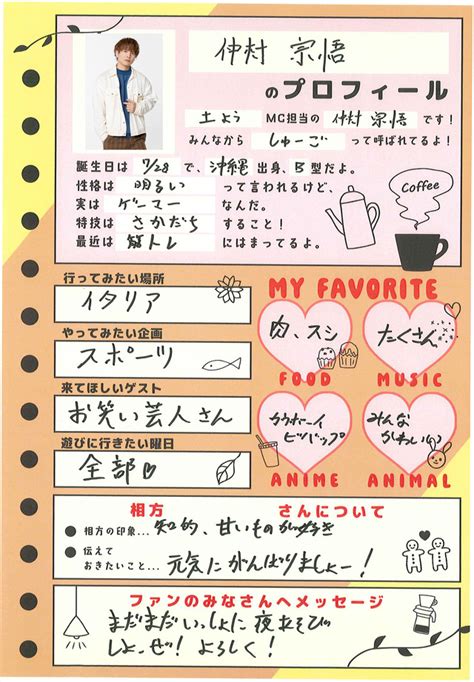 仲村 宗悟
のプロフィール
土よう MC担当の 仲村 宗悟 です!
みんなから しゅーご って呼ばれてるよ!
誕生日は 7/28 で、沖縄 出身、B 型だよ。
性格は 明るい って言われるけど、
実は ゲーマー なんだ。
特技は さかだち すること!
最近は 筋トレ にはまってるよ。
Coffee
行ってみたい場所
イタリア
やってみたい企画
スポーツ
来てほしいゲスト
お笑い芸人さん
遊びに行きたい曜日
全部♡
MY FAVORITE
肉、スシ
FOOD
たくさん
MUSIC
カウボーイ
ビバップ
ANIME
みんな
かわいい
ANIMAL
相方 さんについて
相方の印象... 知的、甘いものが好き
伝えて
おきたいこと... 元気にがんばりましょー!
ファンのみなさんへメッセージ
まだまだいっしょに夜あそび
しよーぜ! よろしく!